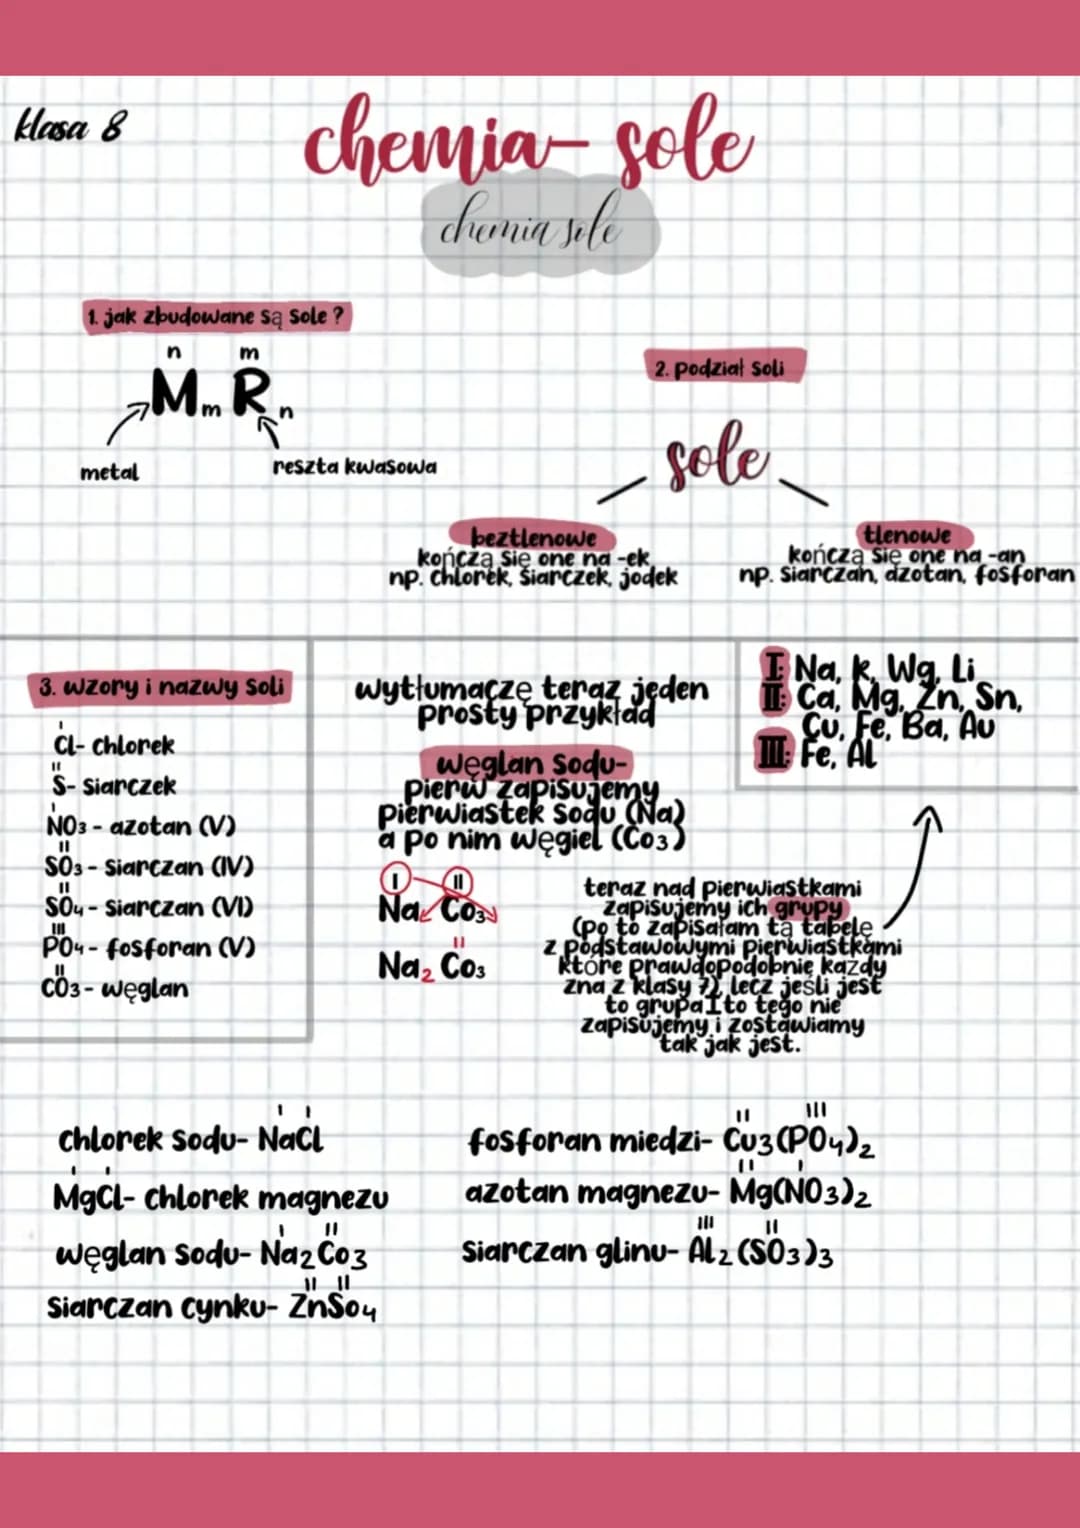 klasa 8
chemia- sole
chemia sole
1. jak zbudowane są sole ?
n m
MmRn
metal
reszta kwasowa
2. podział soli
sole
beztlenowe
kończą się one na -ek
np. chlorek, siarczek, jodek
tlenowe
kończą się one na -an
np. siarczan, azotan, fosforan
3. wzory i nazwy soli
I
Cl- chlorek
II
S- siarczek
I
NO3 - azotan (V)
II
SO3 - siarczan (IV)
II
SO4 - siarczan (VI)
III
PO4 - fosforan (V)
II
CO3 - węglan
wytłumaczę teraz jeden
prosty przykład
węglan sodu-
pierw zapisujemy
pierwiastek sodu (Na)
a po nim węgiel (Co3)
I II
Na Co3
II
Na2 Co3
I: Na, K, Wg, Li
II: Ca, Mg, Zn, Sn,
Cu, Fe, Ba, Au
III: Fe, Al
teraz nad pierwiastkami
zapisujemy ich grupy
(po to zapisałam tą tabelę
z podstawowymi pierwiastkami
które prawdopodobnie każdy
zna z klasy 7), lecz jeśli jest
to grupa I to tego nie
zapisujemy i zostawiamy
tak jak jest.
I I
chlorek sodu- NaCl
I I
MgCl- chlorek magnezu
I II
węglan sodu- Na2Co3
II II
siarczan cynku- ZnSo4
II III
fosforan miedzi- Cu3(PO4)2
II I
azotan magnezu- Mg(NO3)2
III II
siarczan glinu- Al2(SO3)3